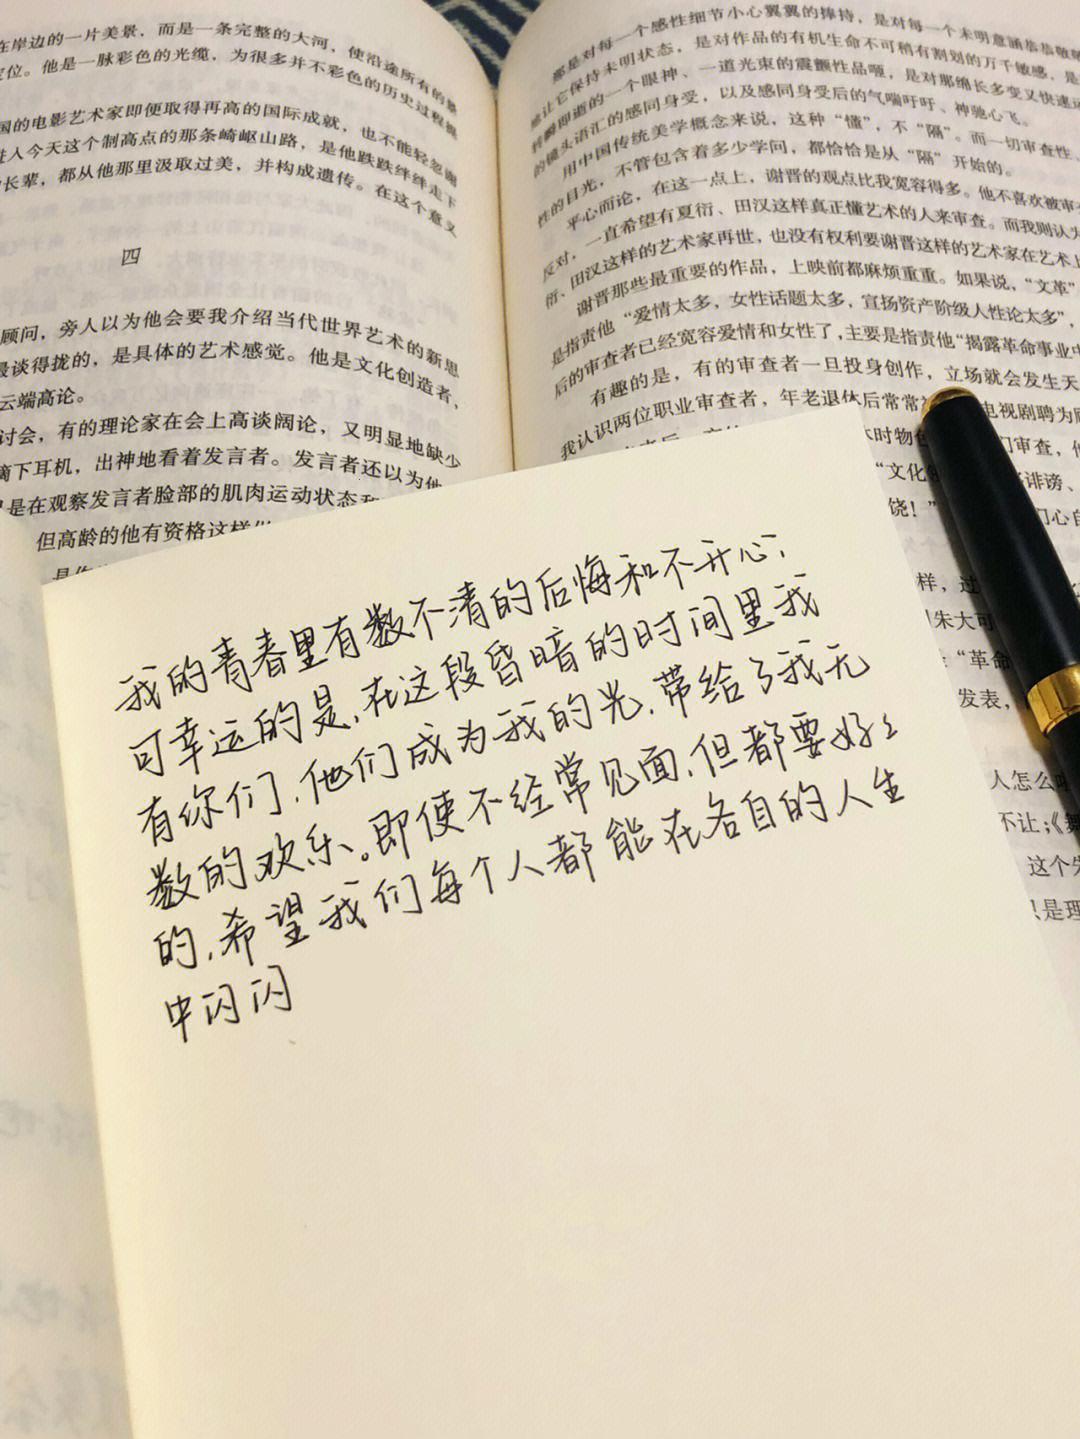 在岸边的一片美景，而是一条完整的大河，使沿途所有的景
定位。他是一脉彩色的光缆，为很多并不彩色的历史过程提
国的电影艺术家即便取得再高的国际成就，也不能轻忽谢
进入今天这个制高点的那条崎岖山路，是他跌跌绊绊走下
长辈，都从他那里汲取过美，并构成遗传。在这个意义
四
顾问，旁人以为他会要我介绍当代世界艺术的新思
最谈得拢的，是具体的艺术感觉。他是文化创造者，
云端高论。
讨会，有的理论家在会上高谈阔论，又明显地缺少
摘下耳机，出神地看着发言者。发言者还以为他
只是在观察发言者脸部的肌肉运动状态和
但高龄的他有资格这样做
那是对每一个感性细节小心翼翼的捧持，是对每一个未明意涵恭恭敬敬
地让它保持未明状态，是对作品的有机生命不可稍有割划的万千敏感，是
转瞬即逝的一个眼神、一道光束的震颤性品咂，是对那绵长多变又快速运
的镜头语汇的感同身受，以及感同身受后的气喘吁吁、神驰心飞。
用中国传统美学概念来说，这种“懂”，不“隔”。而一切审查性、
性的目光，不管包含着多少学问，都恰恰是从“隔”开始的。
平心而论，在这一点上，谢晋的观点比我宽容得多。他不喜欢被审
反对，一直希望有夏衍、田汉这样真正懂艺术的人来审查。而我则认为
衍、田汉这样的艺术家再世，也没有权利要谢晋这样的艺术家在艺术上
谢晋那些最重要的作品，上映前都麻烦重重。如果说，“文革”
是指责他“爱情太多，女性话题太多，宣扬资产阶级人性论太多”，
后的审查者已经宽容爱情和女性了，主要是指责他“揭露革命事业中
有趣的是，有的审查者一旦投身创作，立场就会发生天
我认识两位职业审查者，年老退休后常常被 电视剧聘为顾
时物色 们审查，他
“文化 诽谤、
饶！” 门心自
样，过
朱大可
“革命
发表，
人怎么
不让；《舞
这个
只是理
我的青春里有数不清的后悔和不开心，
可幸运的是，在这段昏暗的时间里我
有你们，他们成为我的光，带给了我无
数的欢乐。即使不经常见面，但都要好好
的，希望我们每个人都能在各自的人生
中闪闪